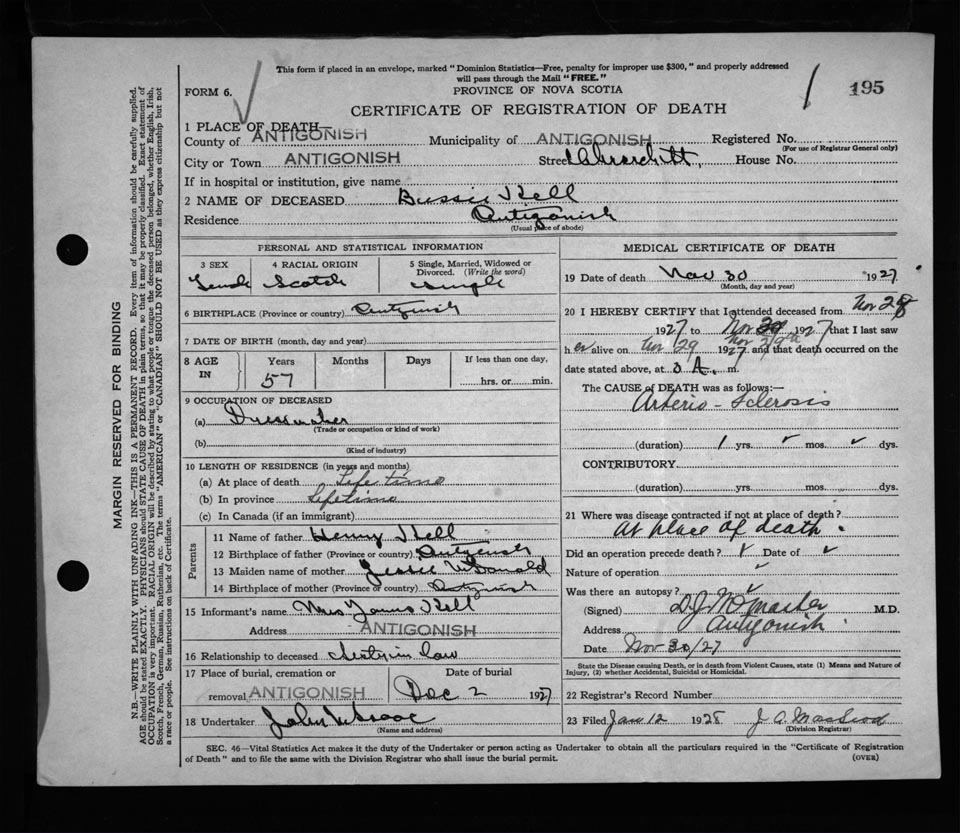 This form if placed in an envelope, marked "Dominion Statistics—Free, penalty for improper use $300," and properly addressed
will pass through the Mail "FREE."
FORM 6. PROVINCE OF NOVA SCOTIA
195
CERTIFICATE OF REGISTRATION OF DEATH
1 PLACE OF DEATH—
County of ANTIGONISH Municipality of ANTIGONISH Registered No.
(For use of Registrar General only)
City or Town ANTIGONISH Street House No.
If in hospital or institution, give name
2 NAME OF DECEASED
Residence Antigonish
(Usual place of abode)
PERSONAL AND STATISTICAL INFORMATION
3 SEX 4 RACIAL ORIGIN 5 Single, Married, Widowed or
Divorced. (Write the word)
Female Scotch Single
6 BIRTHPLACE (Province or country) Antigonish
7 DATE OF BIRTH (month, day and year)
8 AGE IN Years Months Days If less than one day,
57 hrs. or min.
9 OCCUPATION OF DECEASED
(a) Dressmaker
(Trade or occupation or kind of work)
(b)
(Kind of industry)
10 LENGTH OF RESIDENCE (in years and months)
(a) At place of death Life time
(b) In province Lifetime
(c) In Canada (if an immigrant)
Parents
11 Name of father Henry
12 Birthplace of father (Province or country) Antigonish
13 Maiden name of mother Jessie McDonald
14 Birthplace of mother (Province or country) Antigonish
15 Informant's name Mrs
Address ANTIGONISH
16 Relationship to deceased Sister in law
17 Place of burial, cremation or Date of burial
removal ANTIGONISH Dec 2 1927
18 Undertaker John McIsaac
(Name and address)
MEDICAL CERTIFICATE OF DEATH
19 Date of death Nov 30 1927
(Month, day and year)
20 I HEREBY CERTIFY that I attended deceased from Nov 28
1927 to Nov 1927 that I last saw
h er alive on Nov 29 1927 and that death occurred on the
date stated above, at A. m.
The CAUSE of DEATH was as follows:—
Arterio-Sclerosis
(duration) 1 yrs. mos. dys.
CONTRIBUTORY
(duration) yrs. mos. dys.
21 Where was disease contracted if not at place of death?
At place of death
Did an operation precede death? Date of
Nature of operation
Was there an autopsy?
(Signed) D.J. McMaster M.D.
Address Antigonish
Date Nov 30/27
State the Disease causing Death, or in death from Violent Causes, state (1) Means and Nature of
Injury, (2) whether Accidental, Suicidal or Homicidal.
22 Registrar's Record Number
23 Filed Jan 12 1928 J A MacLeod
(Division Registrar)
SEC. 46—Vital Statistics Act makes it the duty of the Undertaker or person acting as Undertaker to obtain all the particulars required in the "Certificate of Registration
of Death" and to file the same with the Division Registrar who shall issue the burial permit.
(OVER)
MARGIN RESERVED FOR BINDING
N.B.—WRITE PLAINLY WITH UNFADING INK—THIS IS A PERMANENT RECORD. Every item of information should be carefully supplied.
AGE should be stated EXACTLY. PHYSICIANS should STATE CAUSE OF DEATH in plain terms, so that it may be properly classified. Exact statement of
OCCUPATION is very important. RACIAL ORIGIN will be described by stating to what people or tongue the deceased person belonged, whether English, Irish,
Scotch, French, German, Russian, Ruthenian, etc. The terms "AMERICAN" or "CANADIAN" SHOULD NOT BE USED as they express citizenship but not
a race or people. See instructions on back of Certificate.